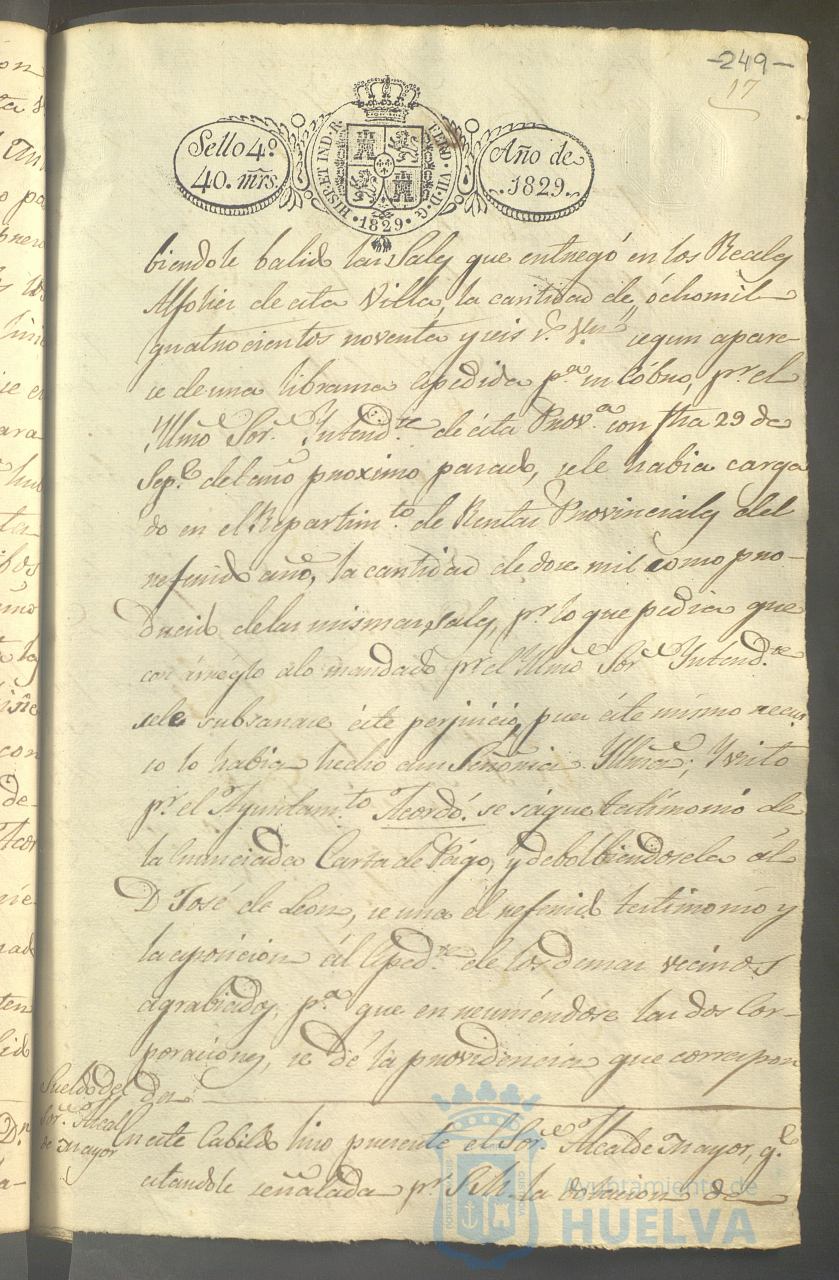 -249-
17
Sello 4º
40. mrs.
HISP. ET IND. R. FERD. VII. D. G.
·1829·
Año de
.1829.
biendole balido las Sales que entregó en los Reales
Alfolies de esta Villa, la cantidad de ochomil
quatrocientos noventa y seis r.s V.n segun apare-
ce de una libransa espedida p.a su cobro, p.r el
Yllmo Sor. Yntend.te de esta Prov.a con fha 29 de
Sep.e del año proximo pasado, sele habia carga
do en el Repartim.to de Rentas Provinciales del
referido año, la cantidad de doce mil como pro-
ducido de las mismas sales, p.r lo que pedia que
con arreglo alo mandado p.r el Yllmo Sor. Yntend.te
sele subsanace éste perjuicio, pues éste mismo recur
so lo habia hecho a su Señoria Yllma; Y visto
p.r el Ayuntam.to Acordó: se saque testimonio de
la enunciada Carta de Pago, y debolbiendosela ál
D José de Leon, se una el referido testimonio y
la esposicion ál Esped.te de los demas vecinos
agrabiados, p.a que enreuniéndose las dos Cor-
poraciones, se dé la providencia que correspon
da
Sueldo del
Sor. Alcal
de mayor
En este Cabildo hiso presente el Sor. Alcalde mayor, q.e
estandole señalada p.r S.M. la dotacion de
Ayuntamiento de
HUELVA